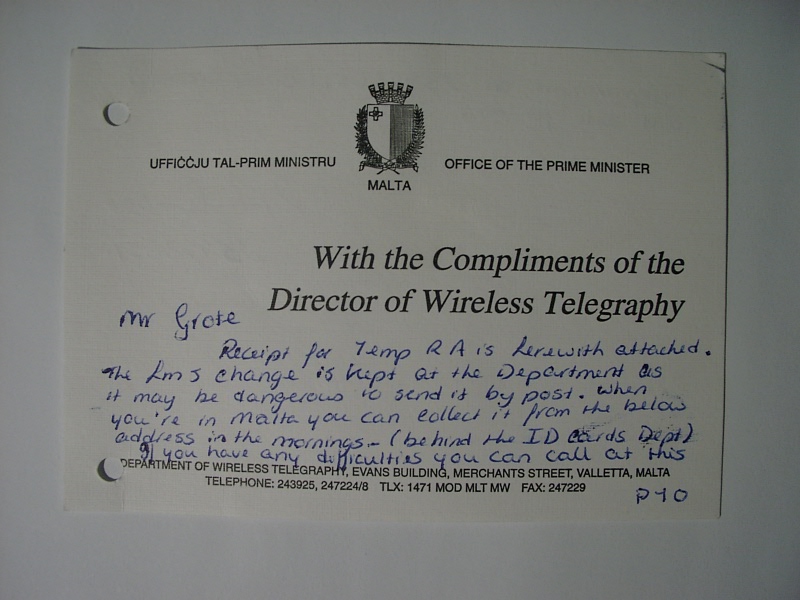 UFFIĊĊJU TAL-PRIM MINISTRU
OFFICE OF THE PRIME MINISTER
MALTA
With the Compliments of the
Director of Wireless Telegraphy
Mr Grote
Receipt for Temp R A is herewith attached.
The Lm5 change is kept at the Department as
it may be dangerous to send it by post. When
you're in Malta you can collect it from the below
address in the mornings - (behind the ID cards Dept)
If you have any difficulties you can call at this
DEPARTMENT OF WIRELESS TELEGRAPHY, EVANS BUILDING, MERCHANTS STREET, VALLETTA, MALTA
TELEPHONE: 243925, 247224/8 TLX: 1471 MOD MLT MW FAX: 247229
PTO